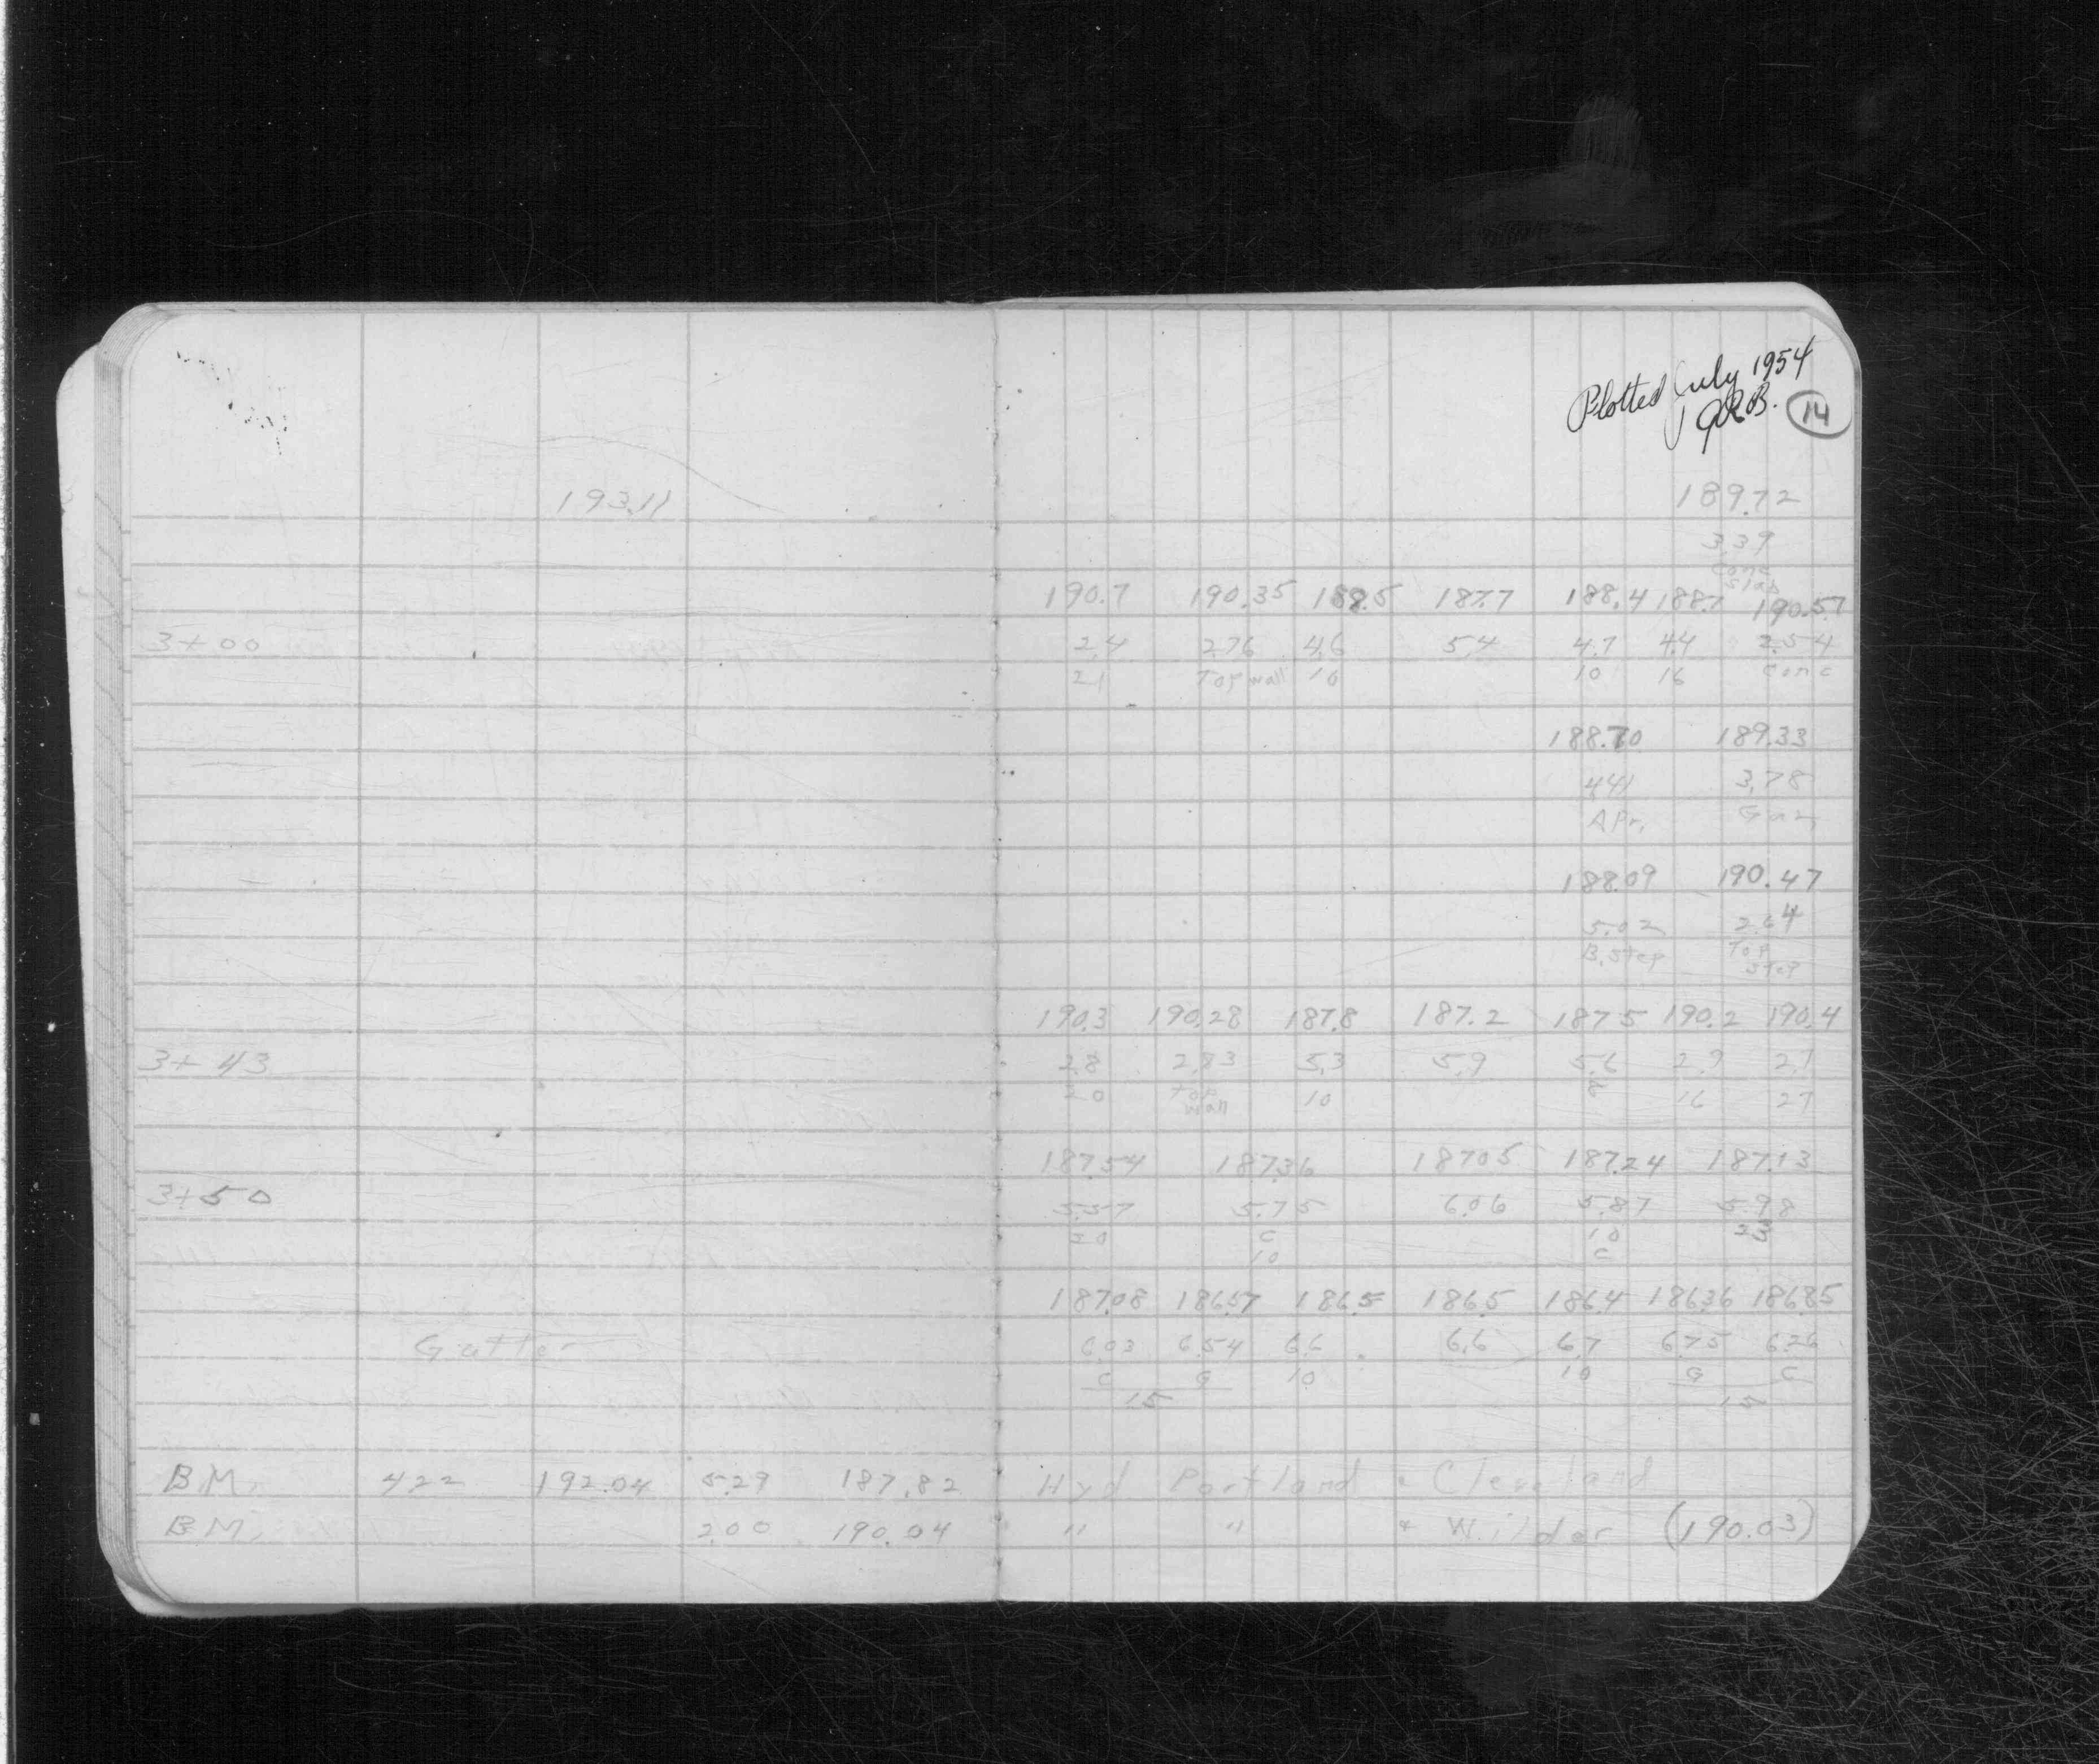 Plotted July 1954
14
193.11 189.72
3.39
Conc
Slab
190.7 190.35 188.5 187.7 188.4 188.7 190.57
3+00 2.4 2.76 4.6 5.4 4.7 4.4 2.54
21 Top wall 10 10 16 Conc
188.70 189.33
4.41 3.78
Apr. Gar
188.09 190.47
5.02 2.64
B.Step Top
Step
190.3 190.28 187.8 187.2 187.5 190.2 190.4
3+43 2.8 2.83 5.3 5.9 5.6 2.9 2.7
20 Top
wall 10 8 16 27
187.54 187.36 187.05 187.24 187.13
3+50 5.57 5.75 6.06 5.87 5.98
20 C 10 23
10 C
187.08 186.57 186.5 186.5 186.4 186.36 186.85
Gutter 6.03 6.54 6.6 6.6 6.7 6.75 6.26
C G 10 10 G C
15 15
B.M. 4.22 192.04 5.29 187.82 Hyd Portland & Cleveland
B.M. 2.00 190.04 " " & Wilder (190.03)